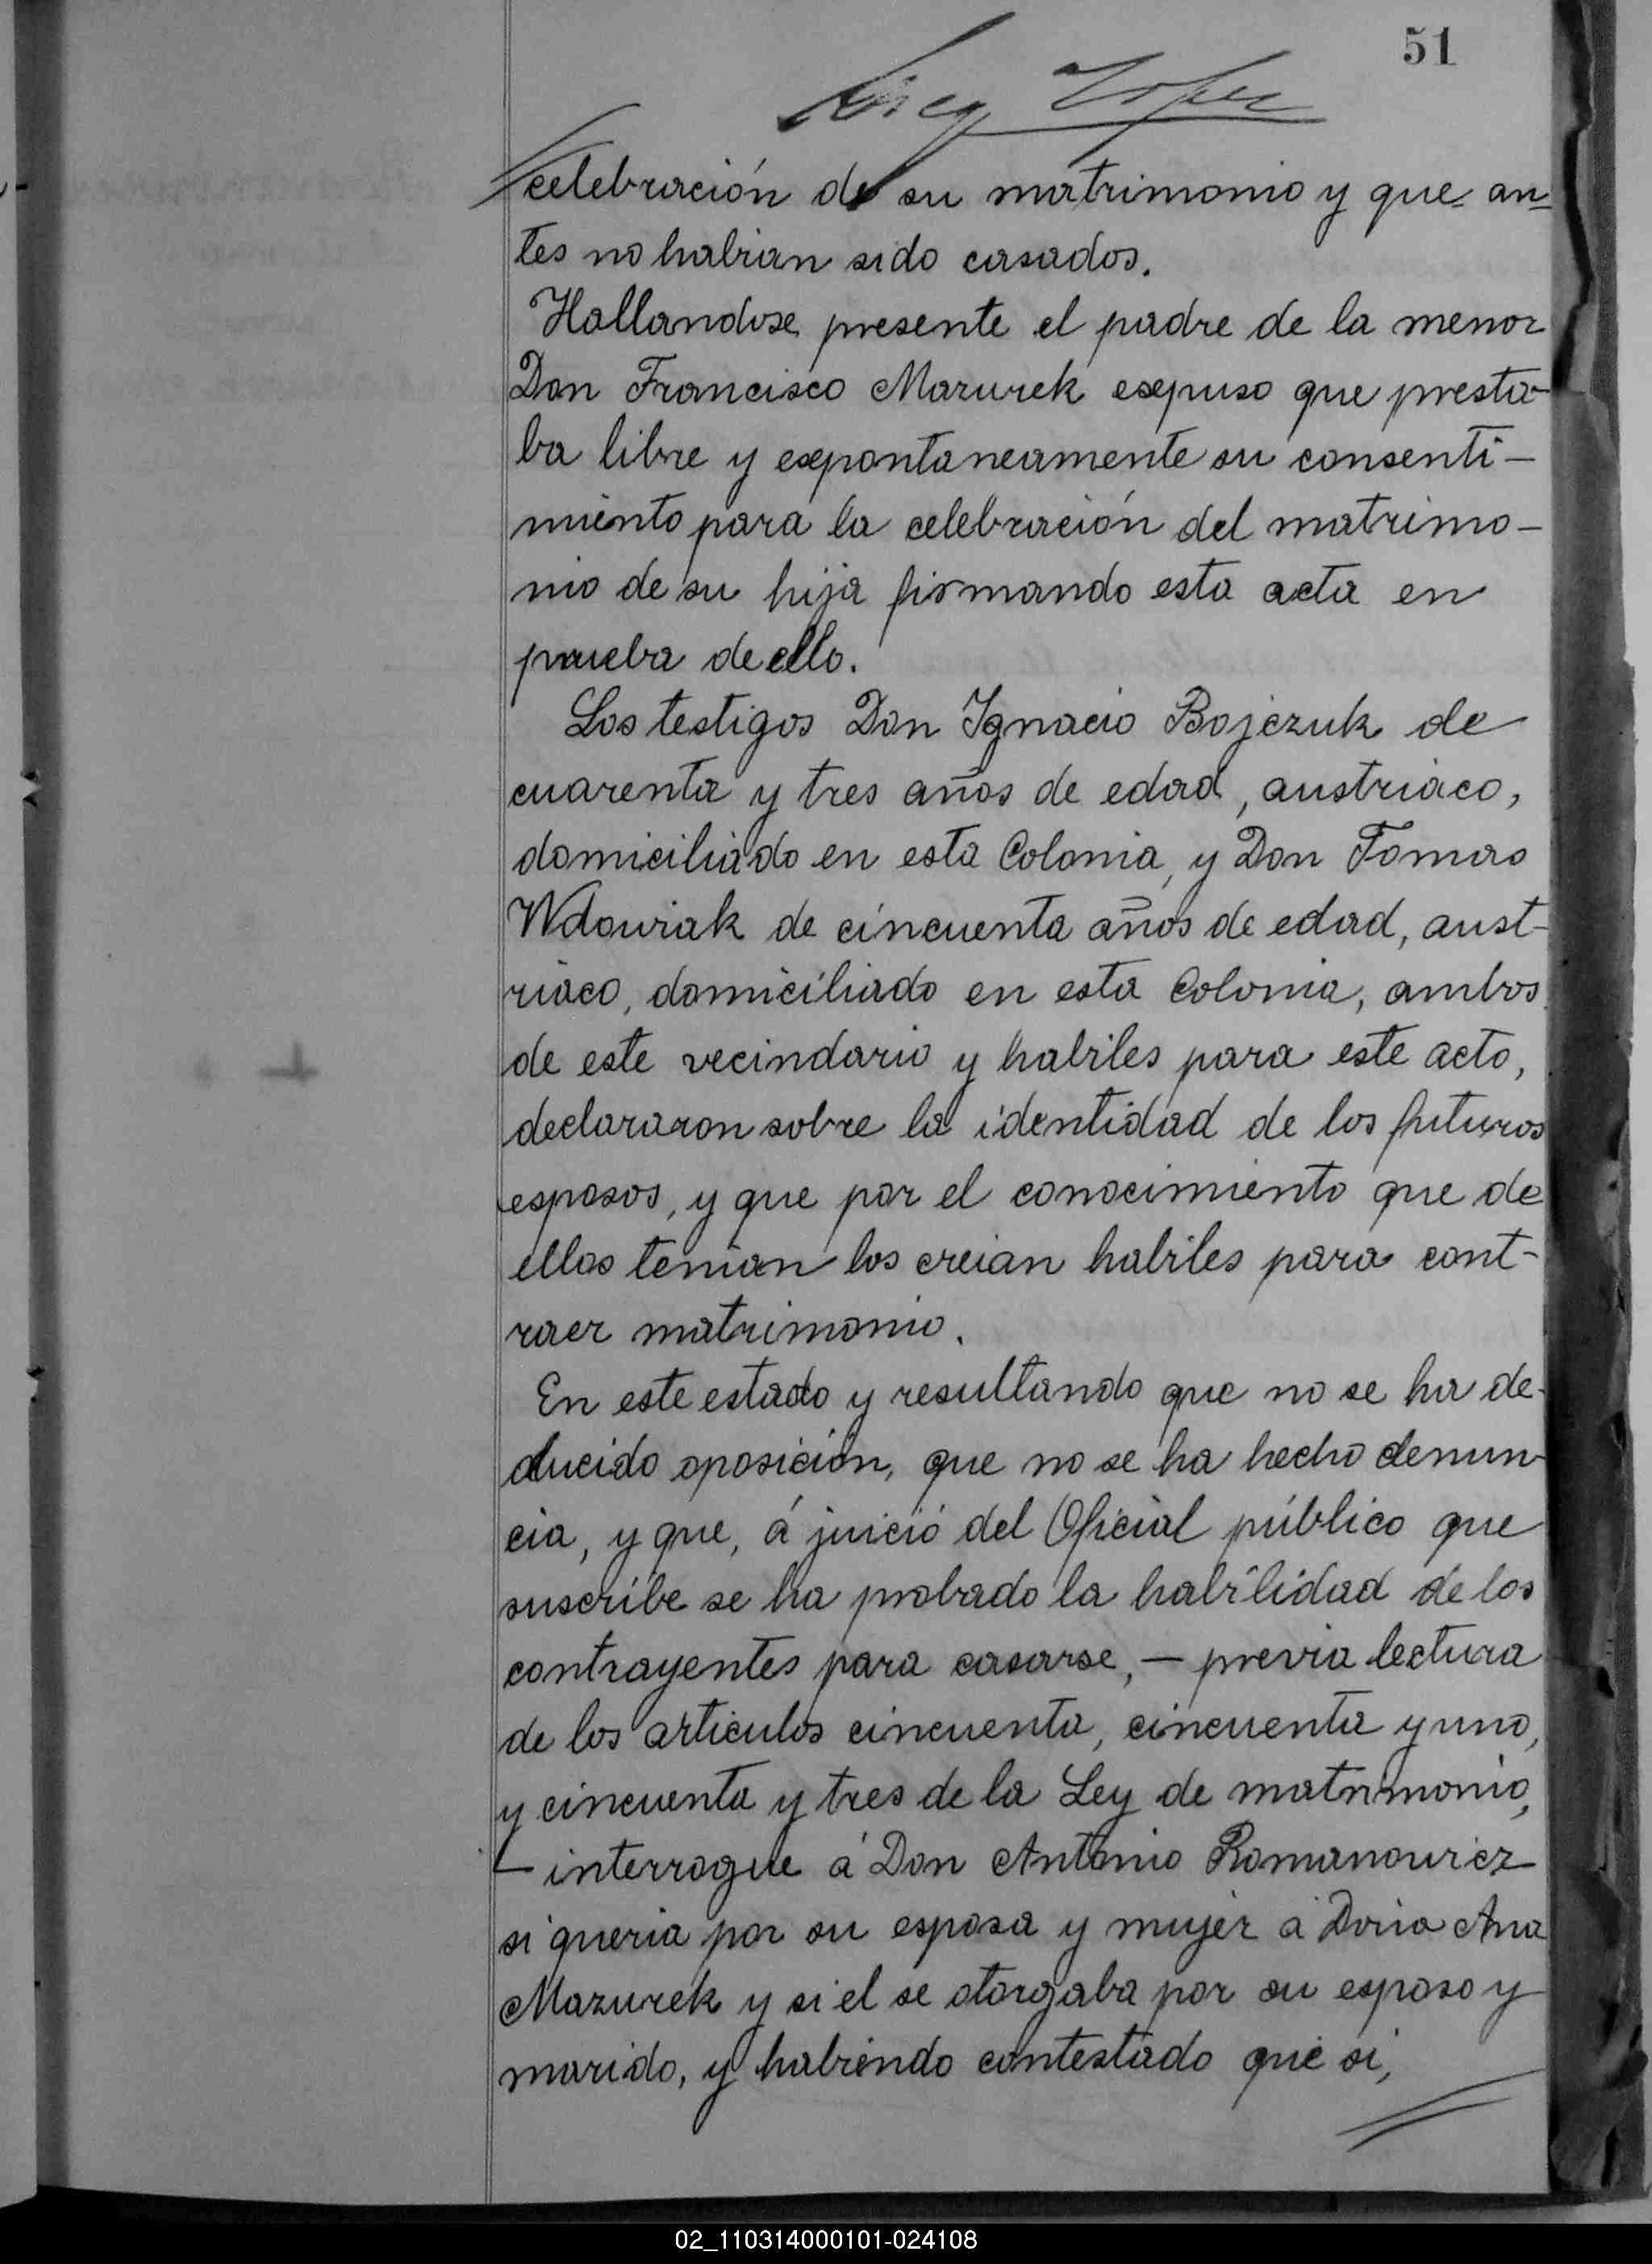 51
celebración de su matrimonio y que an=
tes no habian sido casados.
Hallandose presente el padre de la menor
Don Francisco Mazurek esepuso que presta-
ba libre y esepontaneamente su consenti-
miento para la celebración del matrimo-
nio de su hija firmando esta acta en
prueba de ello.
Los testigos Don Ignacio Bojczuk de
cuarenta y tres años de edad, austriaco,
domiciliado en esta Colonia, y Don Tomas
Wdowiak de cincuenta años de edad, aust-
riaco, domiciliado en esta Colonia, ambos
de este vecindario y habiles para este acto,
declararon sobre la identidad de los futuros
esposos, y que por el conocimiento que de
ellos tenian los creian habiles para cont-
raer matrimonio.
En este estado y resultando que no se ha de-
ducido oposición, que no se ha hecho denun-
cia, y que, á juicio del Oficial público que
suscribe se ha probado la habilidad de los
contrayentes para casarse, — previa lectura
de los articulos cincuenta, cincuenta y uno,
y cincuenta y tres de la Ley de matrimonio,
— interrogue á Don Antonio Romanowicz
si queria por su esposa y mujer á Doña Ana
Mazurek y si el se otorgaba por su esposo y
marido, y habiendo contestado que si,
02_110314000101-024108